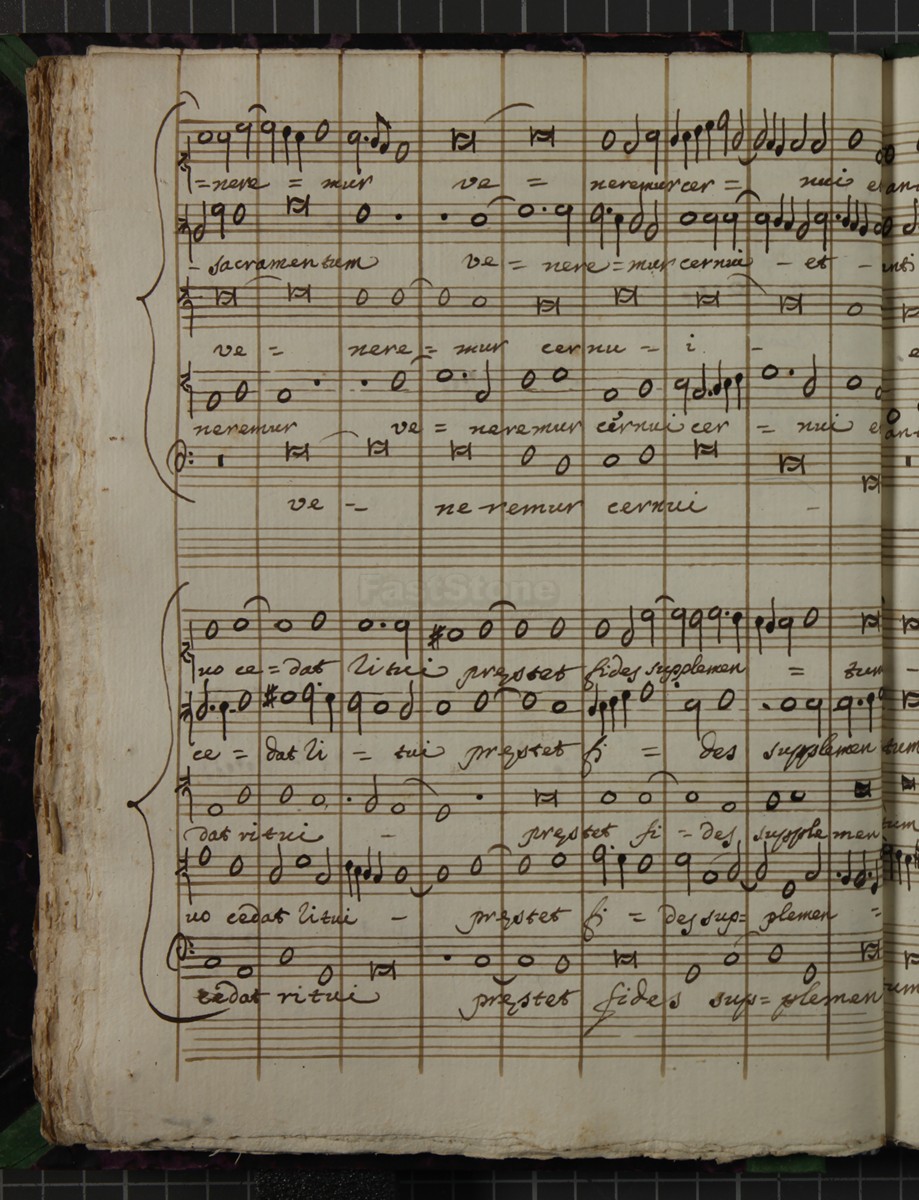 =nere = mur ve = neremur cer = nui et an
- sacramentum ve = nere = mur cernui - et - anti
ve = nere = mur cer nu - i -
neremur ve = neremur cernui cer = nui et an
ve - ne - remur cernui -
FastStone
uo ce = dat litui pręstet fides supplemen = tum -
ce = dat li = tui pręstet fi = des supplemen tum
dat ritui - pręstet fi = des supple men tum
uo cedat litui - pręstet fi = des sup= plemen =
cedat ritui pręstet fides sup= plemen tum